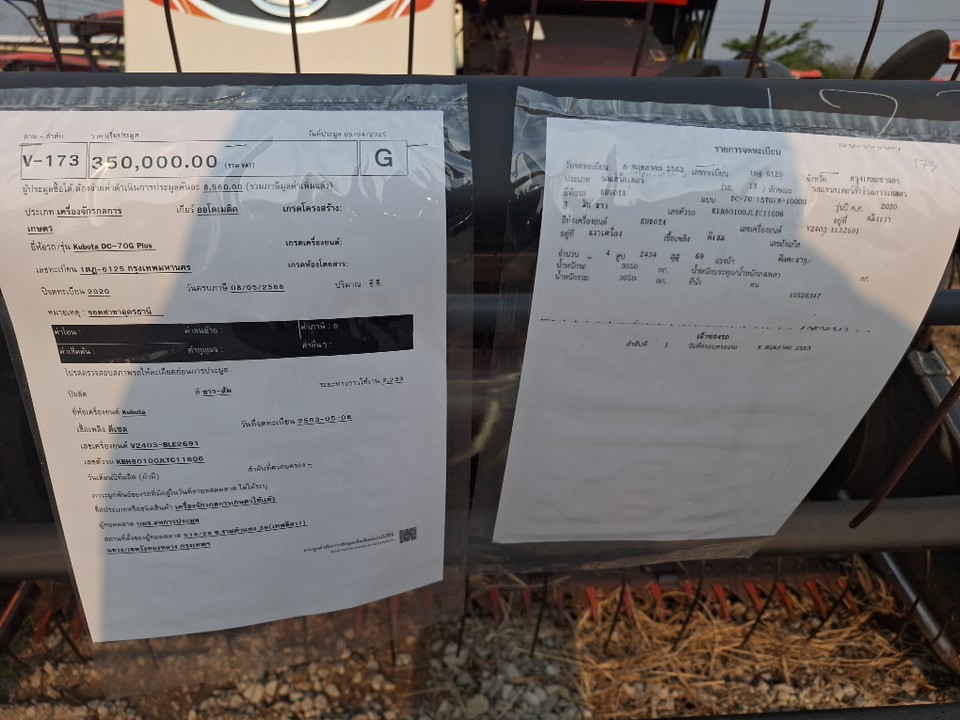 ลาน - ลำดับ ราคาเริ่มประมูล วันที่ประมูล 05/04/2025
V-173 350,000.00 (รวม VAT) G
ผู้ประมูลซื้อได้ ต้องจ่ายค่าดำเนินการประมูลคันละ 8,560.00 (รวมภาษีมูลค่าเพิ่มแล้ว)
ประเภท เครื่องจักรกลการ เกียร์ ออโตเมติค เกรดโครงสร้าง:
เกษตร
ยี่ห้อรถ/รุ่น Kubota DC-70G Plus เกรดเครื่องยนต์:
เลขทะเบียน 1ตฎ-6125 กรุงเทพมหานคร เกรดห้องโดยสาร:
ปีจดทะเบียน 2020 วันครบภาษี 08/05/2568 ปริมาณ ซี.ซี.
หมายเหตุ : จอดสาขาอุดรธานี
ค่าโอน : ค่าขนย้าย : ค่าภาษี : 0
ค่าเช็คต้น : ค่ากุญแจ : ค่าอื่นๆ :
โปรดตรวจสอบสภาพรถให้ละเอียดก่อนการประมูล
ปีผลิต สี ขาว-ส้ม ระยะทางการใช้งาน 2,233
ยี่ห้อเครื่องยนต์ Kubota
เชื้อเพลิง ดีเซล วันที่จดทะเบียน 2563-05-08
เลขเครื่องยนต์ V2403-BLE2691
เลขตัวรถ KBH80100JLTC11606
วันเดือนปีที่ผลิต (ถ้ามี) ลำดับที่ครอบครอง -
ภาระผูกพันของรถที่มีอยู่ในวันที่ขายทอดตลาด ไม่ได้ระบุ
ชื่อประเภทหรือชนิดสินค้า เครื่องจักรกลการเกษตรใช้แล้ว
ผู้ทอดตลาด บมจ.สหการประมูล
สถานที่ตั้งของผู้ทอดตลาด 518/28 ซ.รามคำแหง 39(เทพลีลา1)
แขวง/เขตวังทองหลาง กรุงเทพฯ
รายการจดทะเบียน
วันจดทะเบียน 8 พฤษภาคม 2563 เลขทะเบียน 1ตฎ 6125 จังหวัด กรุงเทพมหานคร
ประเภท รถแทรกเตอร์ (รย. 13) ลักษณะ
ยี่ห้อรถ KUBOTA แบบ รุ่นปี ค.ศ. 2020
สี ส้ม ขาว เลขตัวรถ KBH80100JLTC11606 อยู่ที่
ยี่ห้อเครื่องยนต์ KUBOTA เลขเครื่องยนต์ V2403-BLE2691
อยู่ที่ เชื้อเพลิง ดีเซล เลขถังแก๊ส
จำนวน 4 สูบ 2434 ซีซี 69 แรงม้า
น้ำหนักรถ 3050 กก. น้ำหนักบรรทุก/น้ำหนักลงเพลา กก.
น้ำหนักรวม 3050 กก. ที่นั่ง คน
10526347
เจ้าของรถ
ลำดับที่ 1 วันที่ครอบครองรถ 8 พฤษภาคม 2563